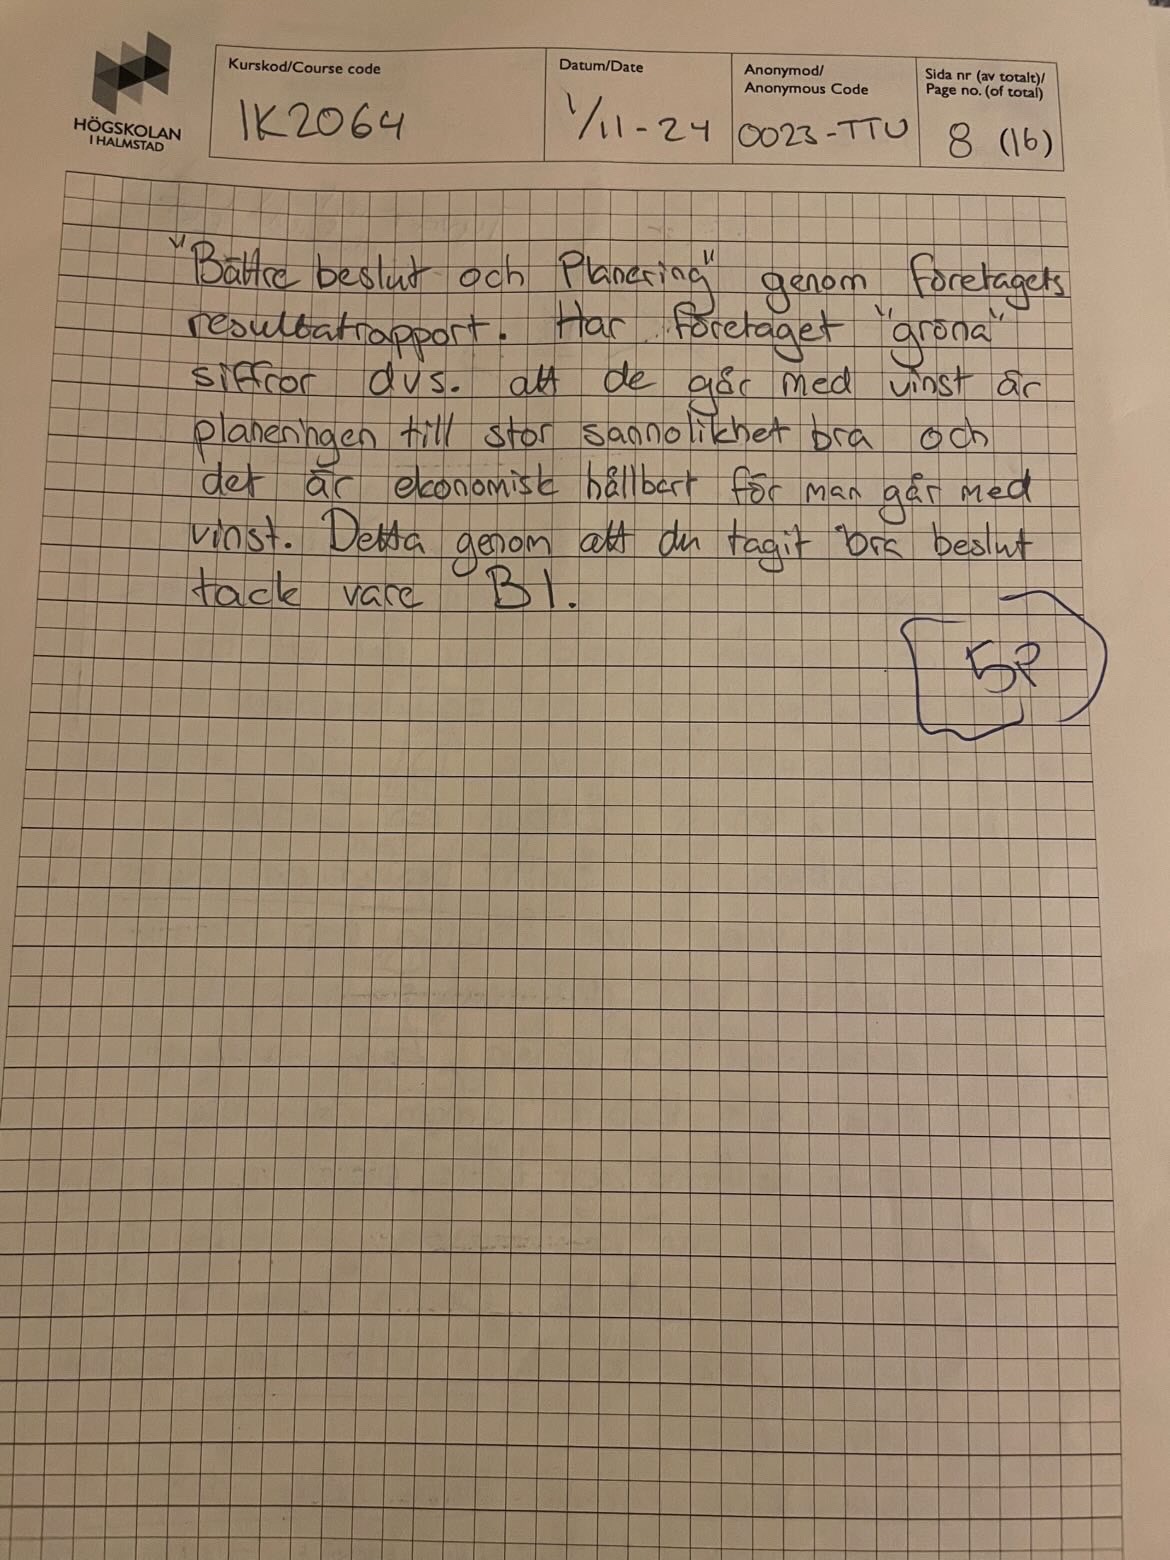 HÖGSKOLAN
I HALMSTAD
Kurskod/Course code
IK2064
Datum/Date
1/11-24
Anonymod/
Anonymous Code
0023-TTU
Sida nr (av totalt)/
Page no. (of total)
8 (16)
"Bättre beslut och Planering" genom företagets
resultatrapport. Har företaget "gröna"
siffror dvs. att de går med vinst är
planeringen till stor sannolikhet bra och
det är ekonomisk hållbart för man går med
vinst. Detta genom att du tagit bra beslut
tack vare BI.
5P